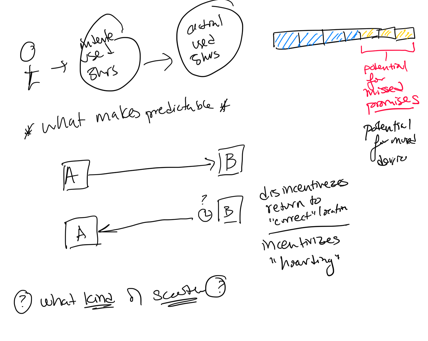 used
8hrs
actual
used
8hrs
potential
for
missed
promises
potential
for missed
* what makes predictable *
A
B
?
A
B
disincentivezes
return to
"correct" location
incentivizes
"hoarding"
? what kind of ?